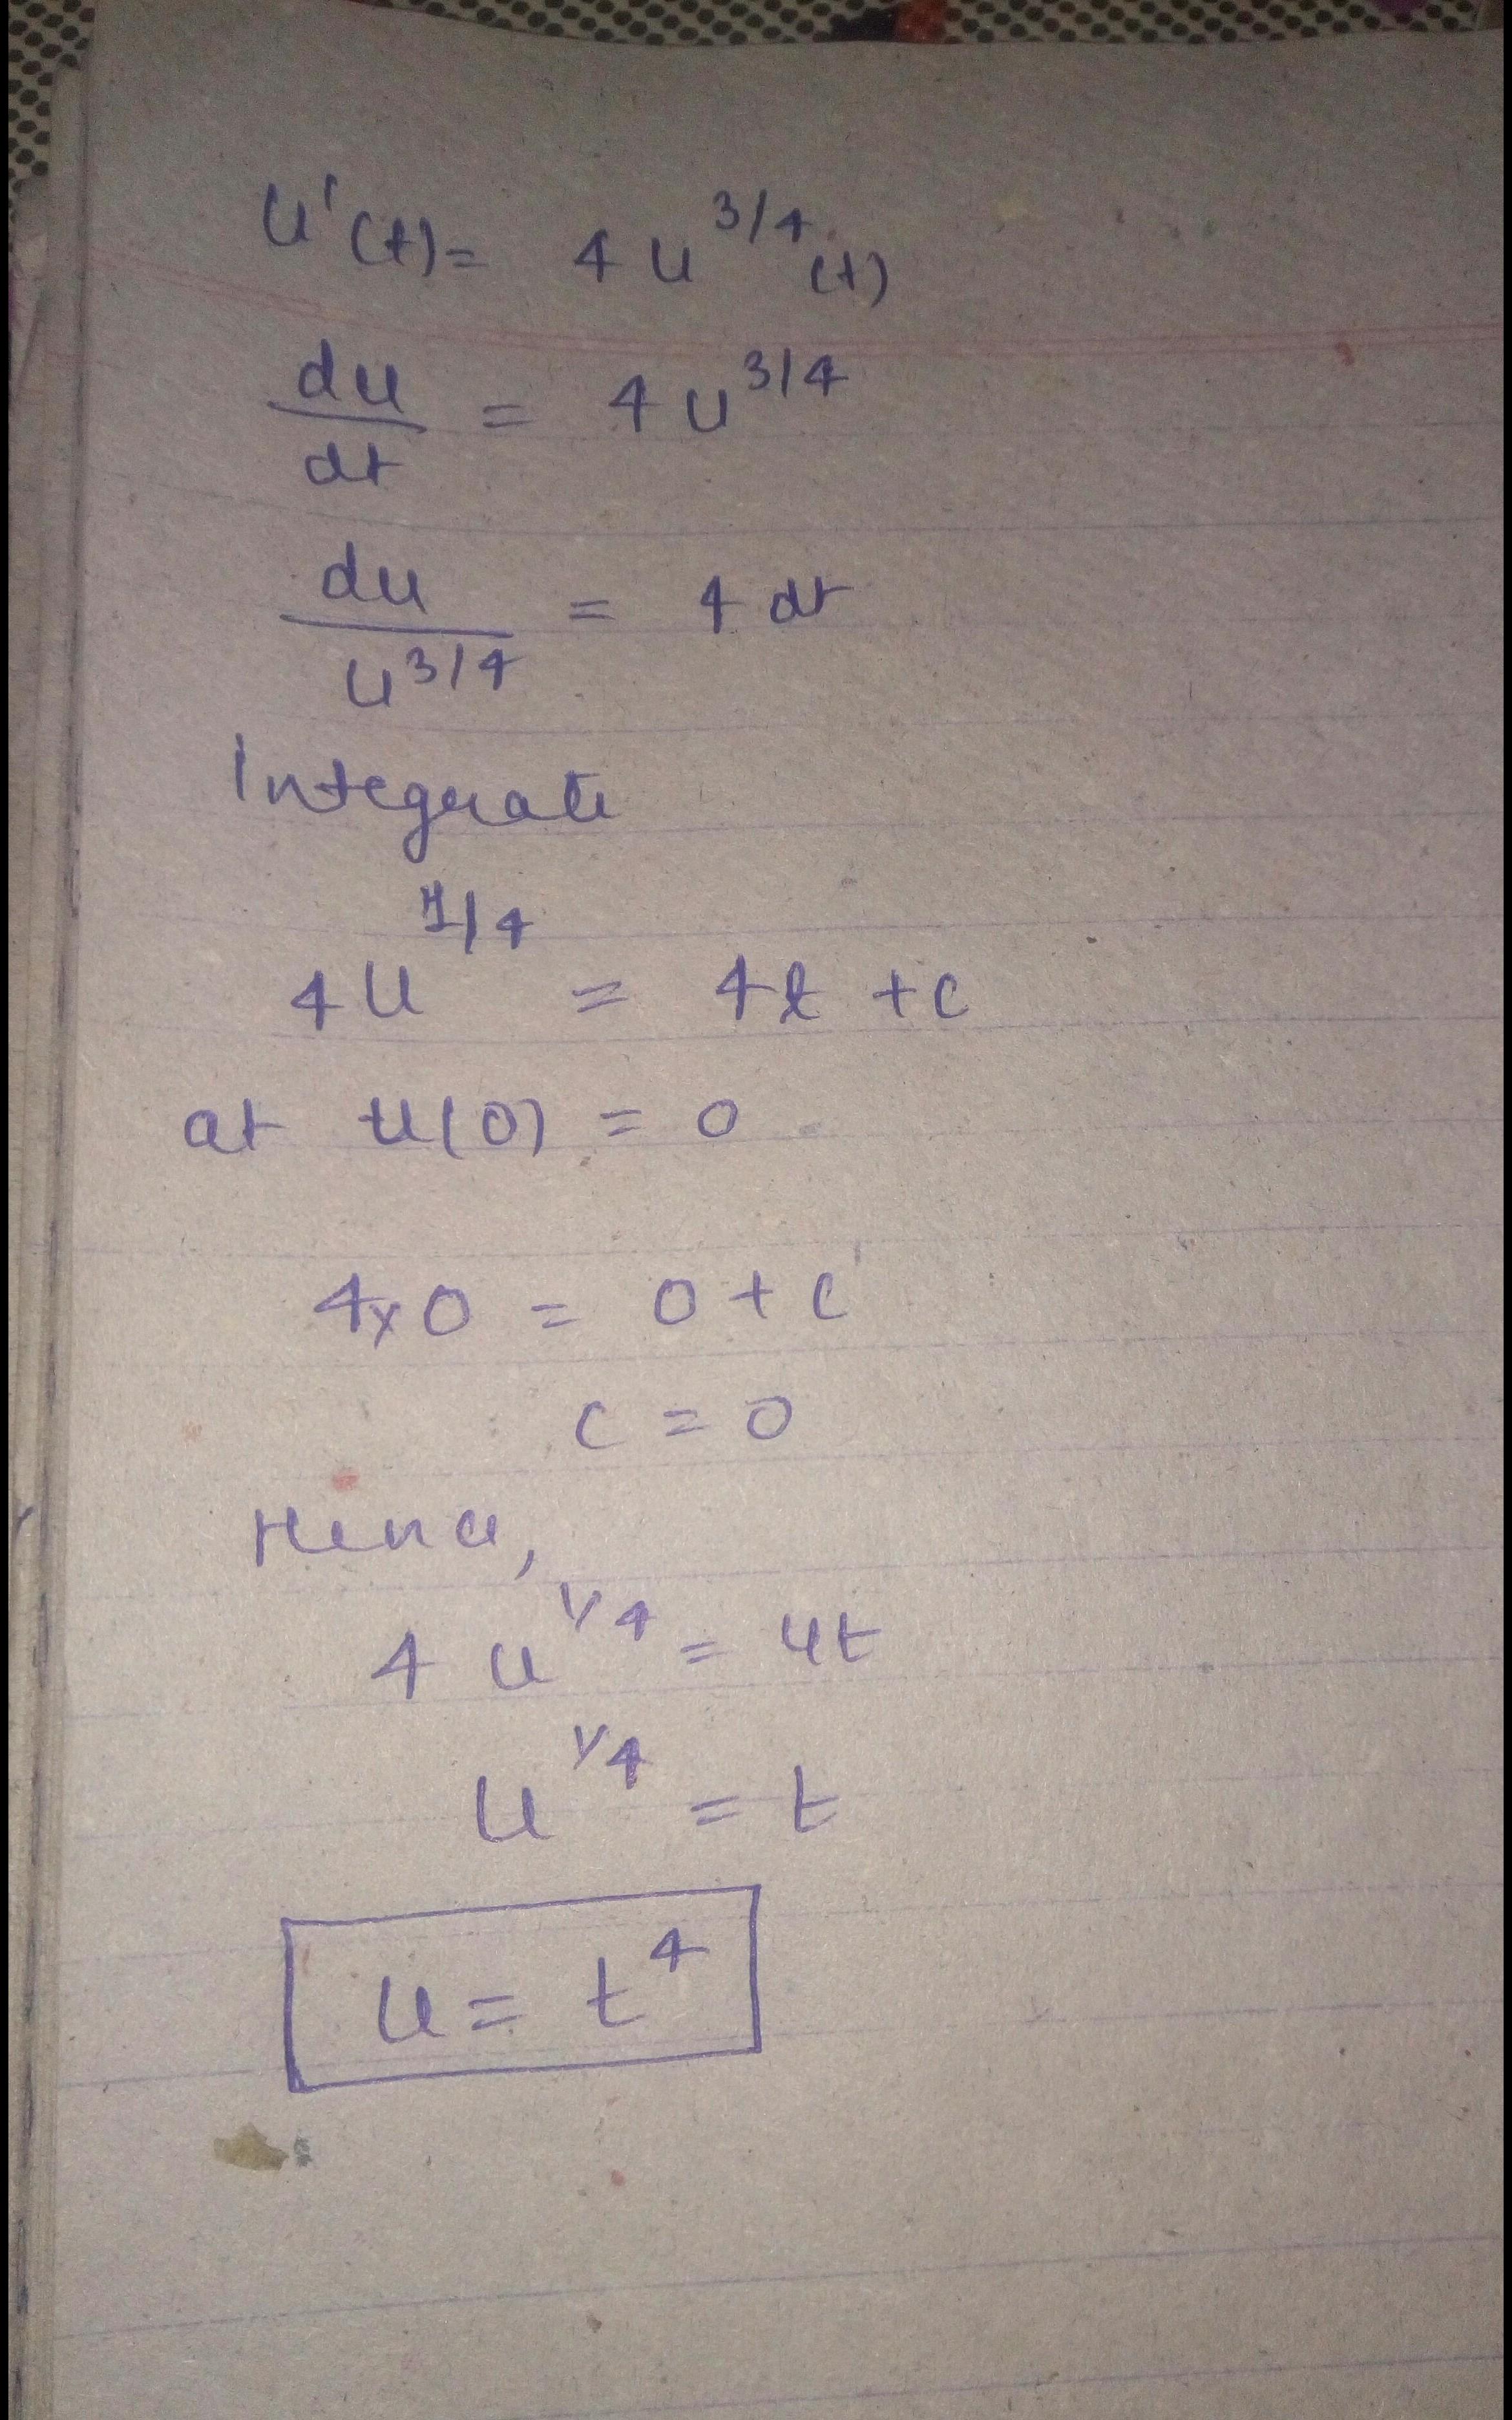 u'(t) = 4 u^3/4 (t)
du/dt = 4 u^3/4
du/u^3/4 = 4 dt
Integrate
4 u^1/4 = 4t + c
at u(0) = 0
4x0 = 0 + c
c = 0
Hence,
4 u^1/4 = 4t
u^1/4 = t
u = t^4